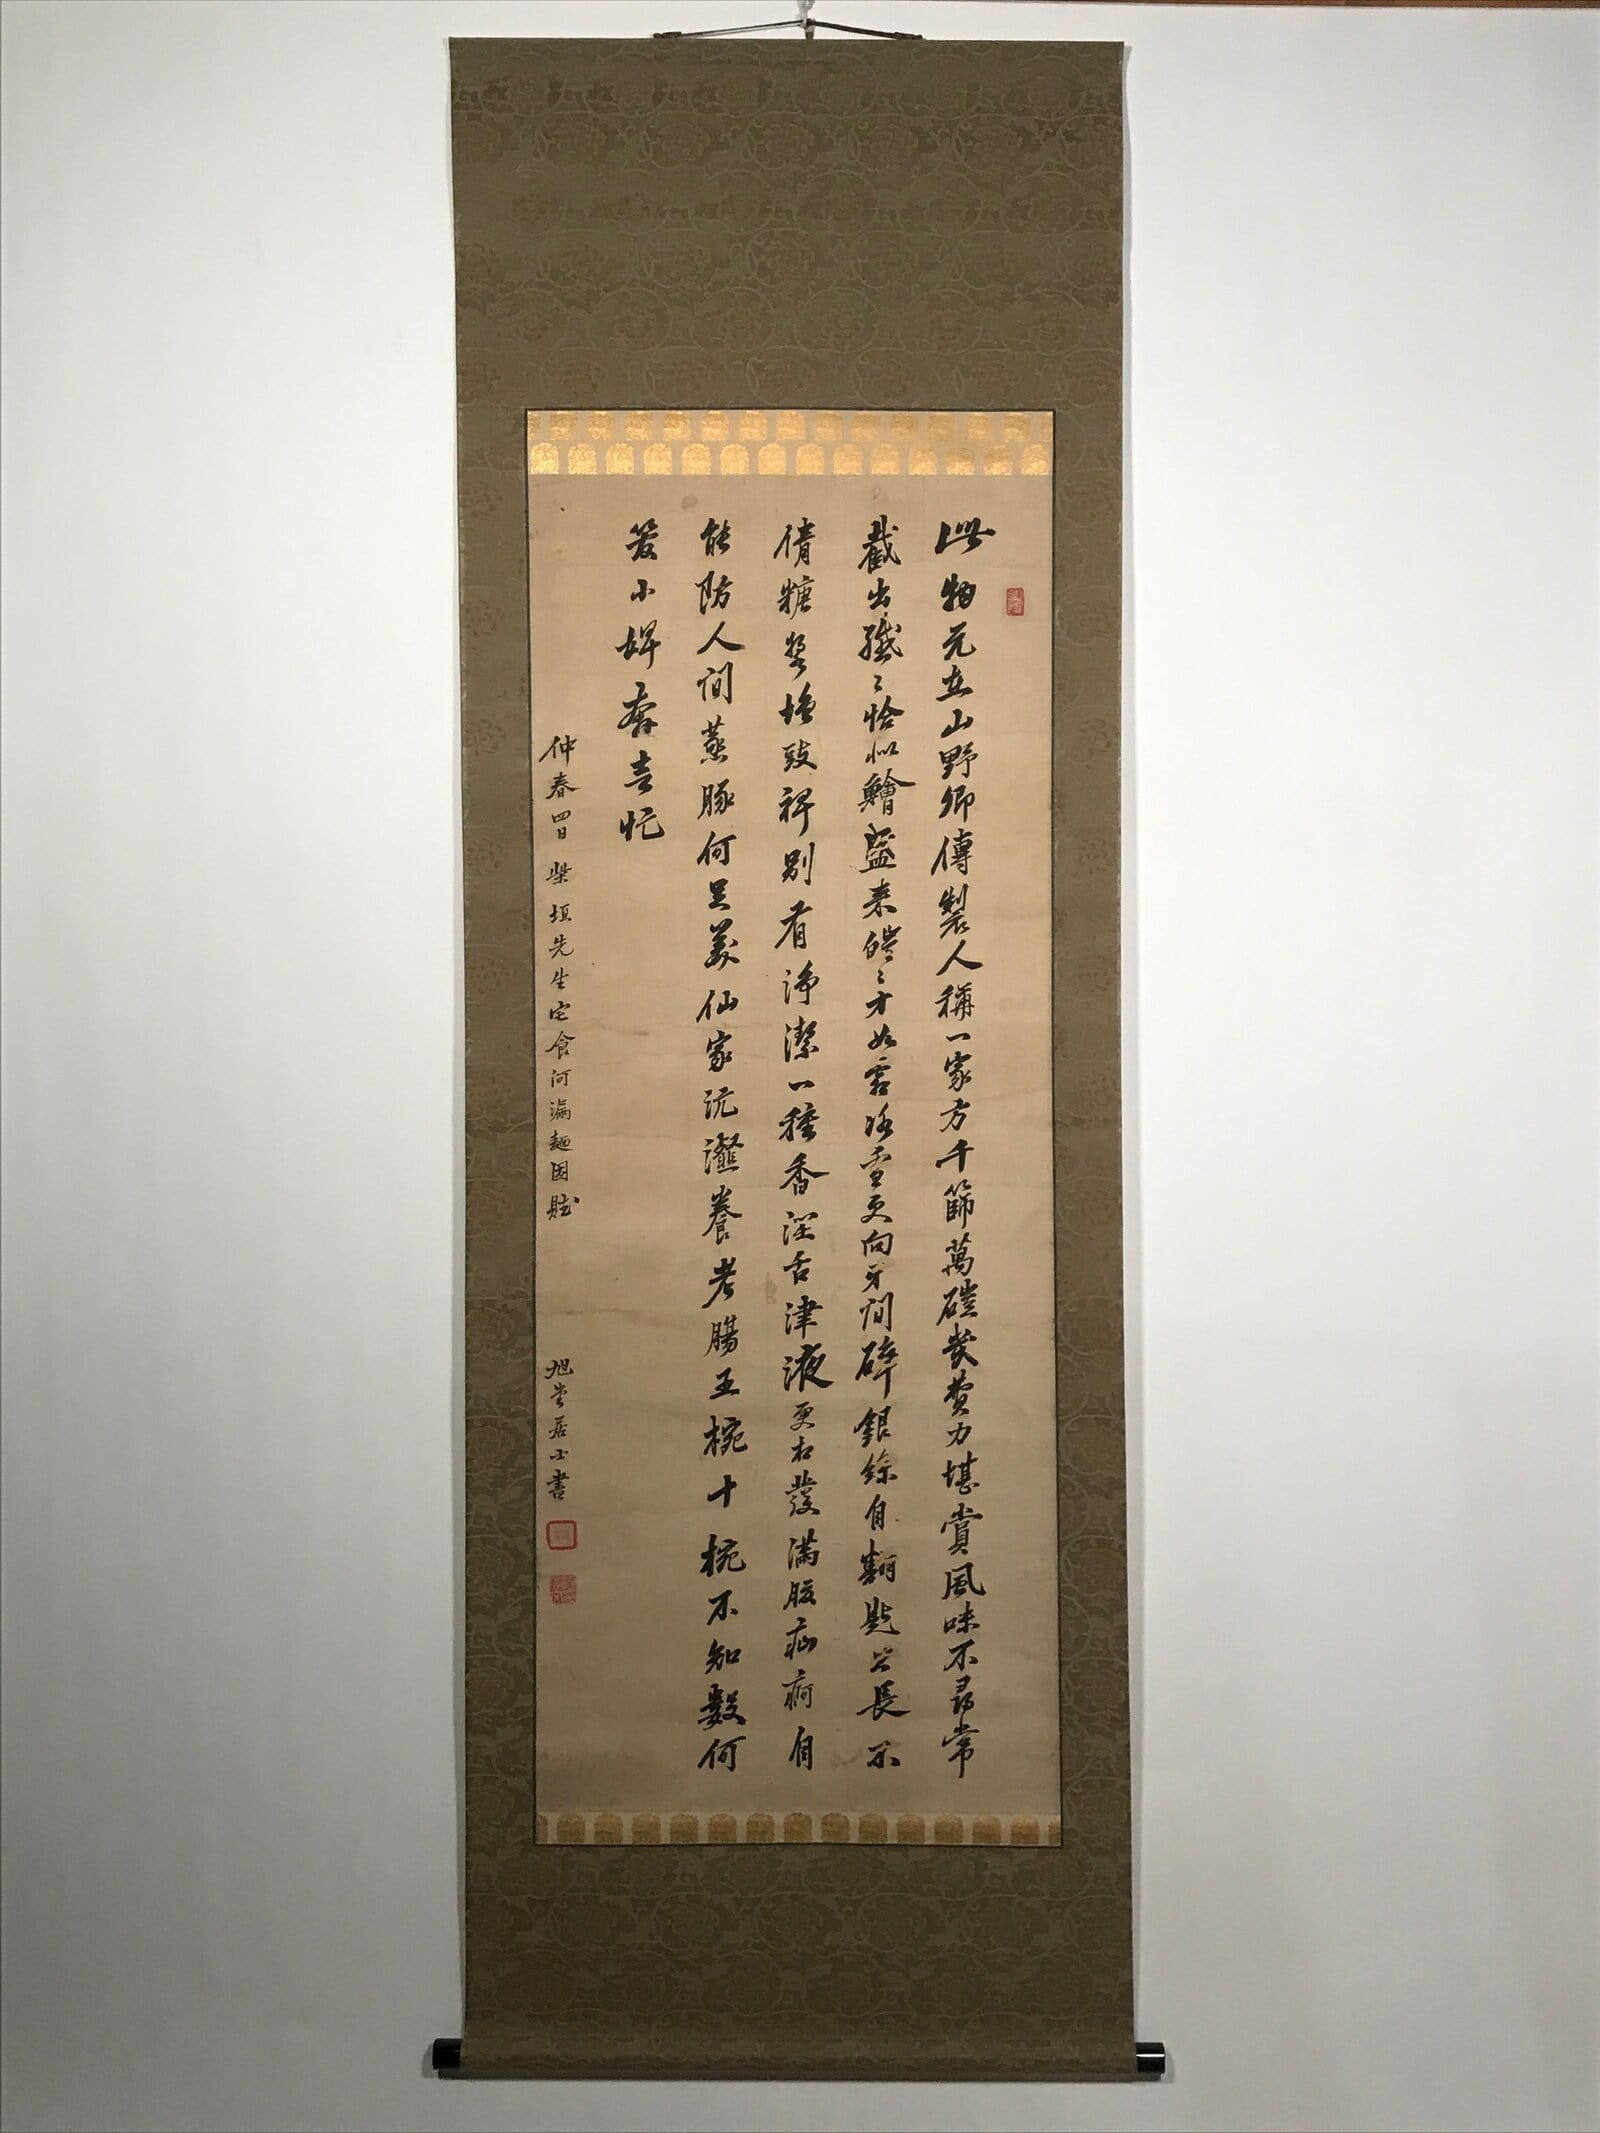 此物元在山野郷傳製人稱一家方千篩萬磑幾費力堪賞風味不尋常
截出孅〻恰似鱠盛来皚〻才如霜疑雪更向牙間碎銀絲自翻匙上長不
借糖蜜塩豉裨別有浄潔一種香淫舌津液更相發滿腹疝痾自
能防人間蒸豚何足美仙家沆瀣養老腸五椀十椀不知數何
管小婢奔走忙
仲春四日 柴垣先生宅食河漏麺因賦
旭堂居士書